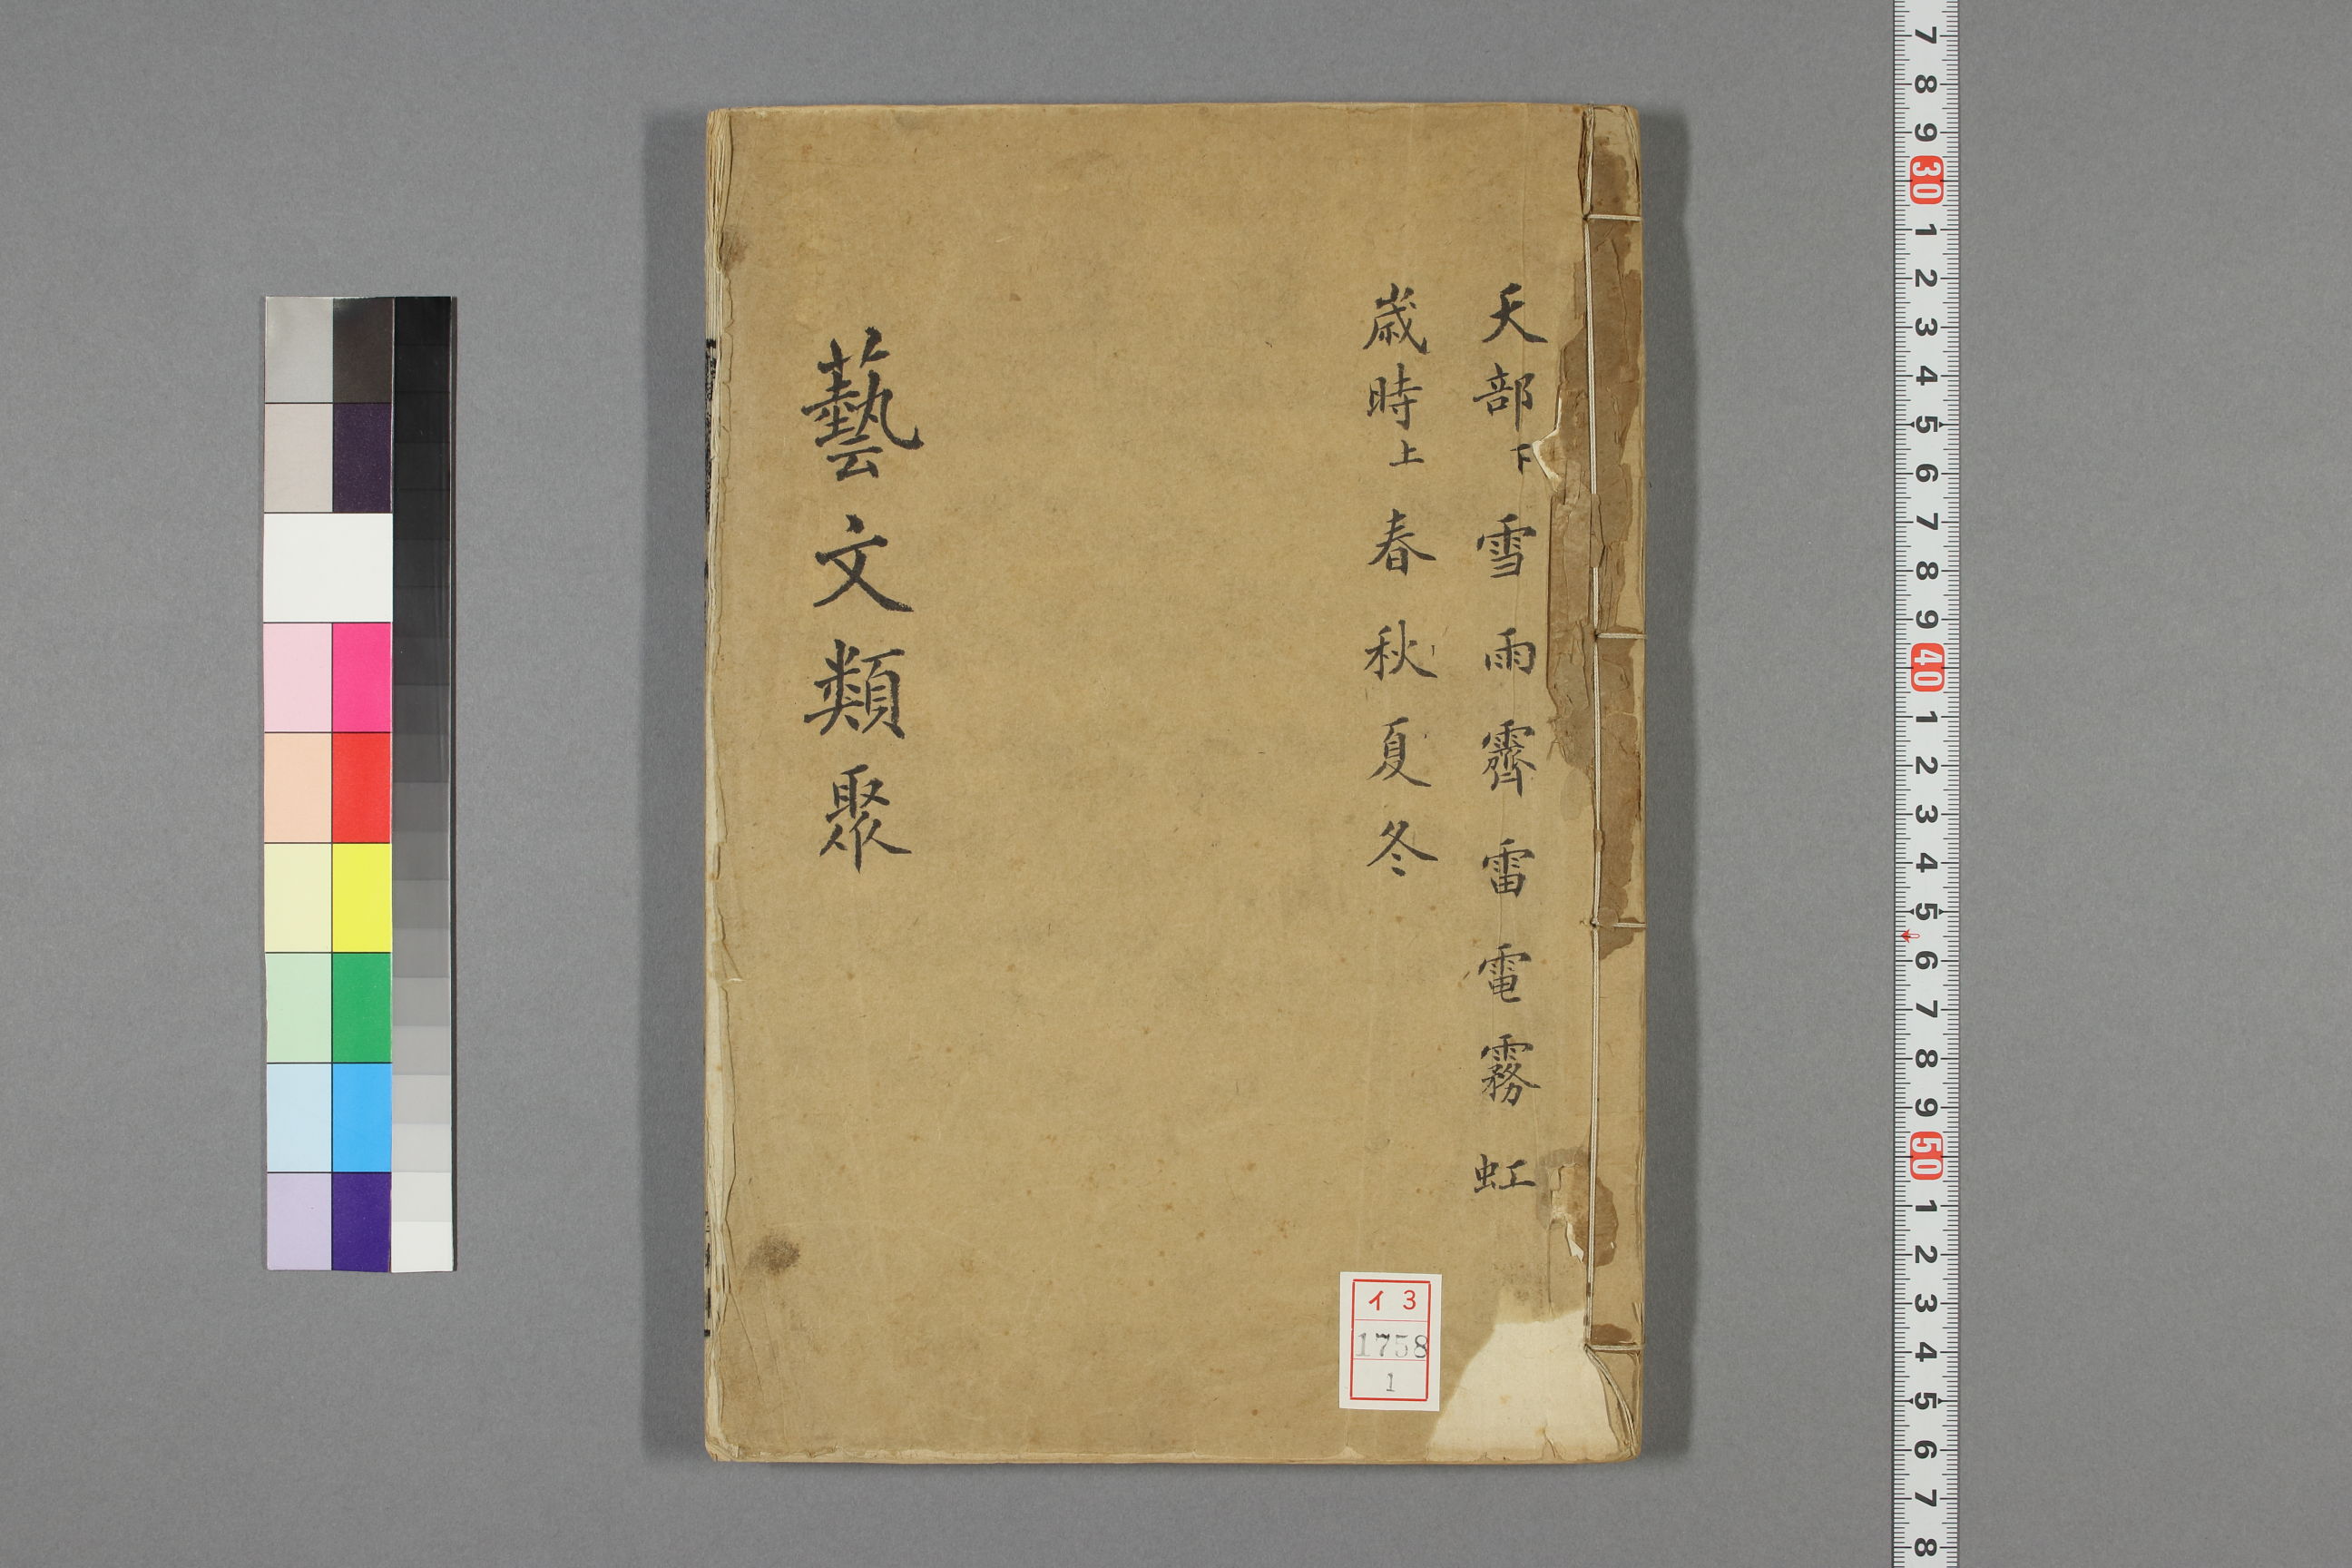 天部下 雪 雨 霽 雷 電 霧 虹
歳時上 春 秋 夏 冬
藝文類聚
イ 3
1758
1
7 8 9 30 1 2 3 4 5 6 7 8 9 40 1 2 3 4 5 6 7 8 9 50 1 2 3 4 5 6 7 8